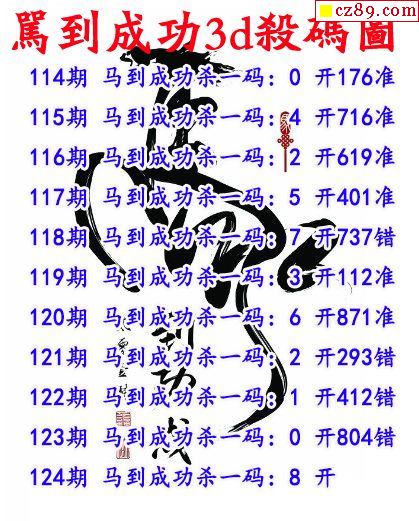 cz89.com
罵到成功3d殺碼圖
114期 马到成功杀一码: 0 开176准
115期 马到成功杀一码: 4 开716准
116期 马到成功杀一码: 2 开619准
117期 马到成功杀一码: 5 开401准
118期 马到成功杀一码: 7 开737错
119期 马到成功杀一码: 3 开112准
120期 马到成功杀一码: 6 开871准
121期 马到成功杀一码: 2 开293错
122期 马到成功杀一码: 1 开412错
123期 马到成功杀一码: 0 开804错
124期 马到成功杀一码: 8 开